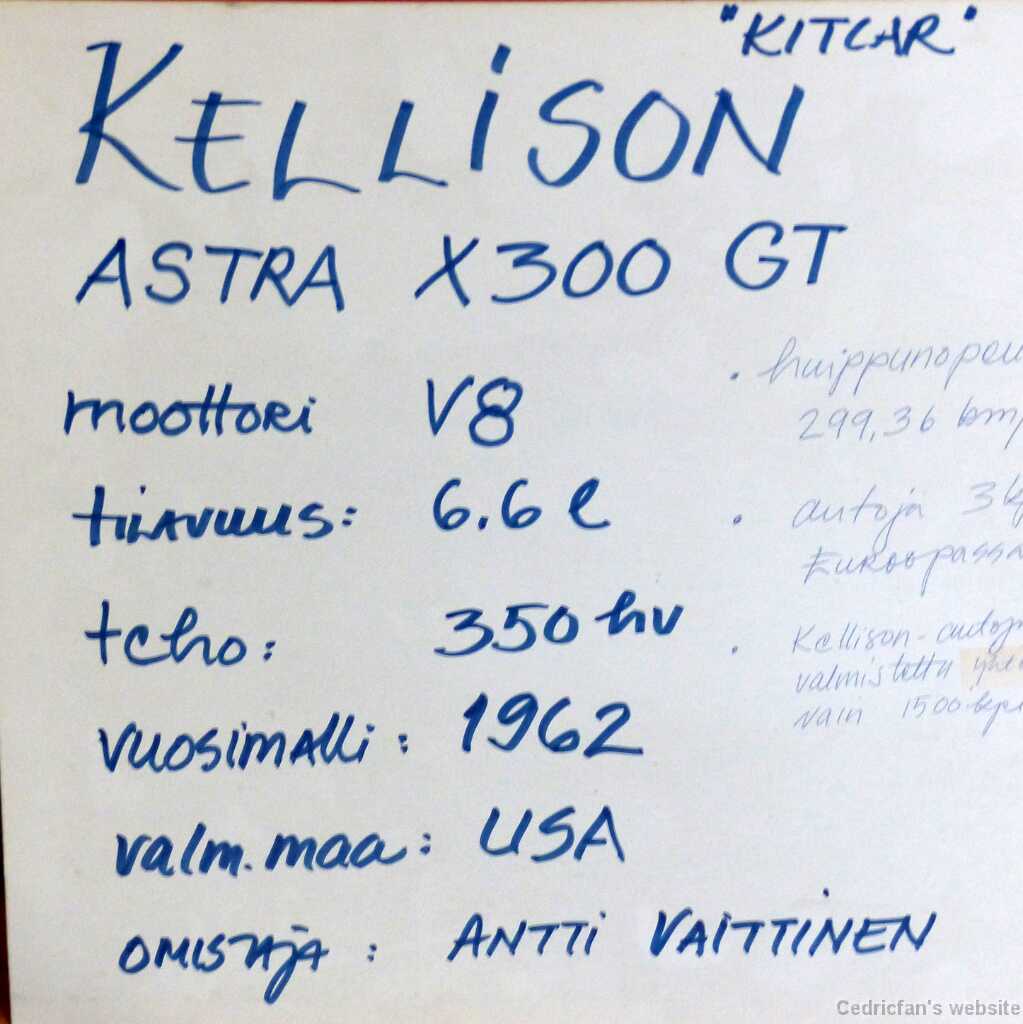 "KITCAR"
KELLiSON
ASTRA X300 GT
moottori V8
tilavuus: 6.6 l
teho: 350 hv
vuosimalli: 1962
valm.maa: USA
omistaja: ANTTi VAiTTiNEN
• huippunopeu
299,36
• autoja 3
Euroopassa
• Kellison-autoja
valmistettu
vain 1500 kpl
Cedricfan's website